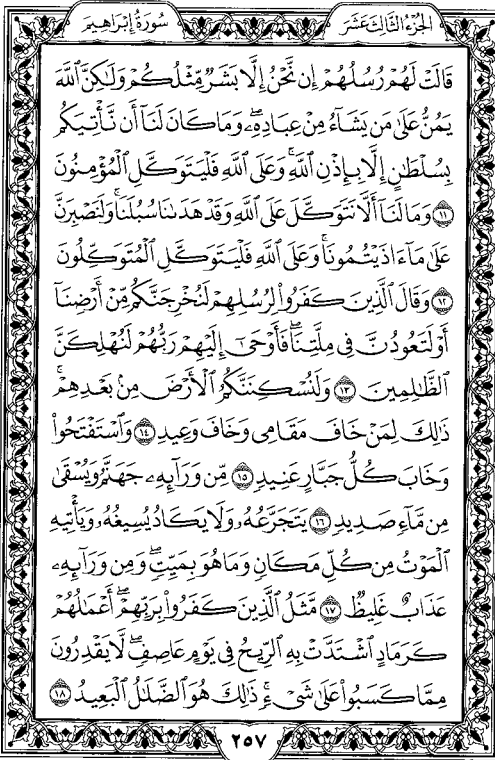 سُورَةُ إِبْرَاهِيم
الجُزْءُ الثَّالِثَ عَشَرَ
قَالَتْ لَهُمْ رُسُلُهُمْ إِن نَّحْنُ إِلَّا بَشَرٌ مِّثْلُكُمْ وَلَٰكِنَّ ٱللَّهَ
يَمُنُّ عَلَىٰ مَن يَشَآءُ مِنْ عِبَادِهِۦۖ وَمَا كَانَ لَنَآ أَن نَّأْتِيَكُم
بِسُلْطَٰنٍ إِلَّا بِإِذْنِ ٱللَّهِۚ وَعَلَى ٱللَّهِ فَلْيَتَوَكَّلِ ٱلْمُؤْمِنُونَ
١١ وَمَا لَنَآ أَلَّا نَتَوَكَّلَ عَلَى ٱللَّهِ وَقَدْ هَدَىٰنَا سُبُلَنَاۚ وَلَنَصْبِرَنَّ
عَلَىٰ مَآ ءَاذَيْتُمُونَاۚ وَعَلَى ٱللَّهِ فَلْيَتَوَكَّلِ ٱلْمُتَوَكِّلُونَ
١٢ وَقَالَ ٱلَّذِينَ كَفَرُوا۟ لِرُسُلِهِمْ لَنُخْرِجَنَّكُم مِّنْ أَرْضِنَآ
أَوْ لَتَعُودُنَّ فِى مِلَّتِنَاۖ فَأَوْحَىٰٓ إِلَيْهِمْ رَبُّهُمْ لَنُهْلِكَنَّ
ٱلظَّٰلِمِينَ ١٣ وَلَنُسْكِنَنَّكُمُ ٱلْأَرْضَ مِنۢ بَعْدِهِمْۚ
ذَٰلِكَ لِمَنْ خَافَ مَقَامِى وَخَافَ وَعِيدِ ١٤ وَٱسْتَفْتَحُوا۟
وَخَابَ كُلُّ جَبَّارٍ عَنِيدٍ ١٥ مِّن وَرَآئِهِۦ جَهَنَّمُ وَيُسْقَىٰ
مِن مَّآءٍ صَدِيدٍ ١٦ يَتَجَرَّعُهُۥ وَلَا يَكَادُ يُسِيغُهُۥ وَيَأْتِيهِ
ٱلْمَوْتُ مِن كُلِّ مَكَانٍ وَمَا هُوَ بِمَيِّتٍۖ وَمِن وَرَآئِهِۦ
عَذَابٌ غَلِيظٌ ١٧ مَّثَلُ ٱلَّذِينَ كَفَرُوا۟ بِرَبِّهِمْۖ أَعْمَٰلُهُمْ
كَرَمَادٍ ٱشْتَدَّتْ بِهِ ٱلرِّيحُ فِى يَوْمٍ عَاصِفٍۖ لَّا يَقْدِرُونَ
مِمَّا كَسَبُوا۟ عَلَىٰ شَىْءٍۚ ذَٰلِكَ هُوَ ٱلضَّلَٰلُ ٱلْبَعِيدُ ١٨
٢٥٧